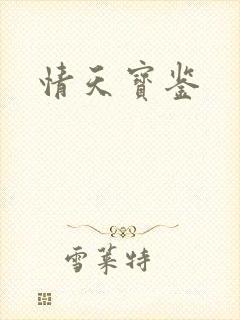 情天寳鉴
雪莱特